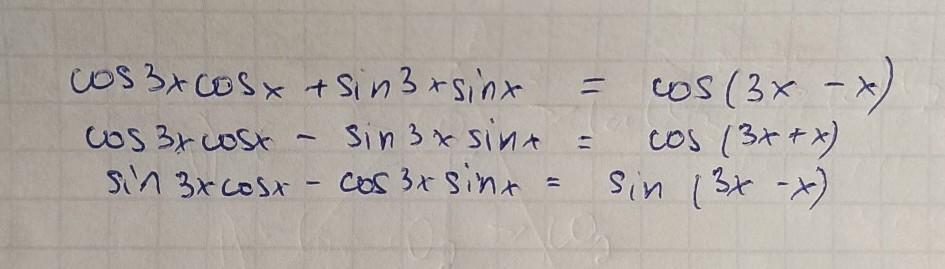 cos3xcosx + sin3xsinx = cos(3x - x)
cos3xcosx - sin3xsinx = cos(3x+x)
sin3xcosx - cos3xsinx = sin(3x-x)